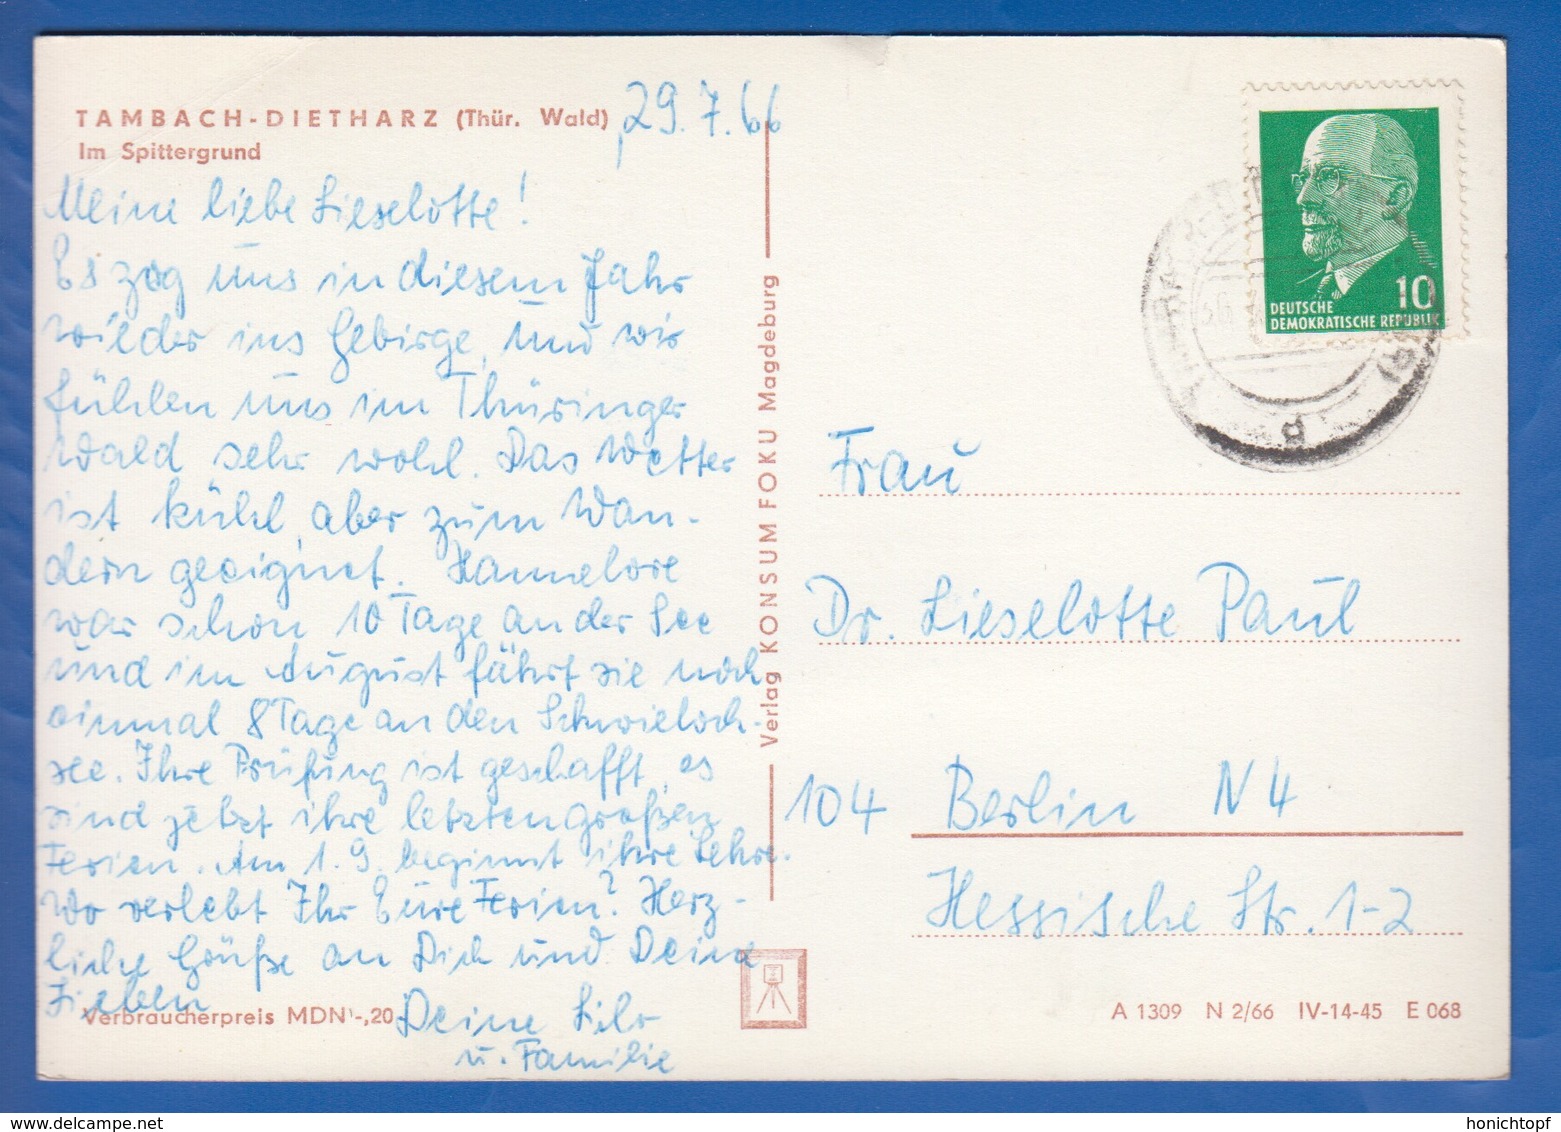 TAMBACH-DIETHARZ (Thür. Wald)
Im Spittergrund
29.7.66
Meine liebe Lieselotte!
Es zog uns in diesem Jahr
wieder ins Gebirge, und wir
fühlen uns im Thüringer
Wald sehr wohl. Das Wetter
ist kühl, aber zum Wan-
dern geeignet. Hannelore
war schon 10 Tage an der See
und im August fährt sie noch
einmal 8 Tage an den Schwieloch-
see. Ihre Prüfung ist geschafft, es
sind jetzt ihre letzten großen
Ferien. Am 1.9. beginnt ihre Lehre.
Wo verlebt Ihr Eure Ferien? Herz-
liche Grüße an Dich und Deine
Lieben
Deine Lilo
u. Familie
Verbraucherpreis MDN -,20
Verlag KONSUM FOKU Magdeburg
DEUTSCHE
DEMOKRATISCHE REPUBLIK
10
Frau
Dr. Lieselotte Paul
104 Berlin N4
Hessische Str. 1-2
A 1309 N 2/66 IV-14-45 E 068
www.delcampe.net
honichtopf